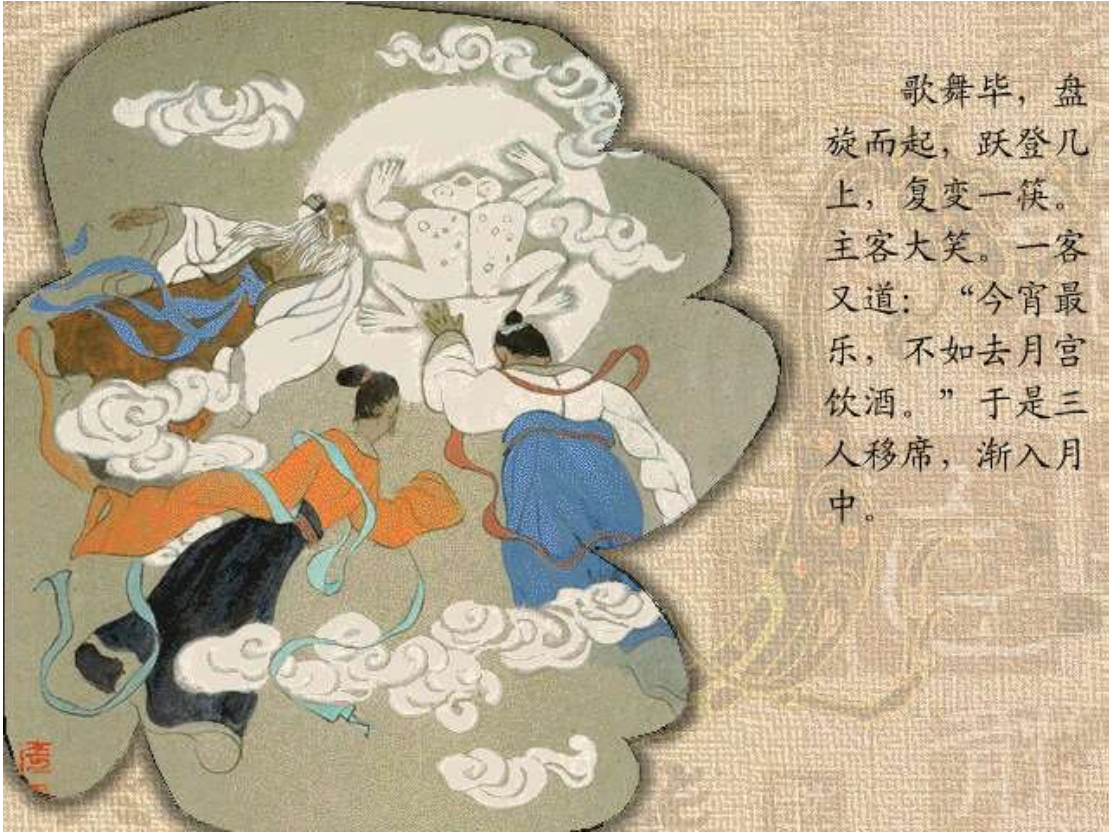 歌舞毕，盘
旋而起，跃登几
上，复变一筷。
主客大笑。一客
又道：“今宵最
乐，不如去月宫
饮酒。”于是三
人移席，渐入月
中。